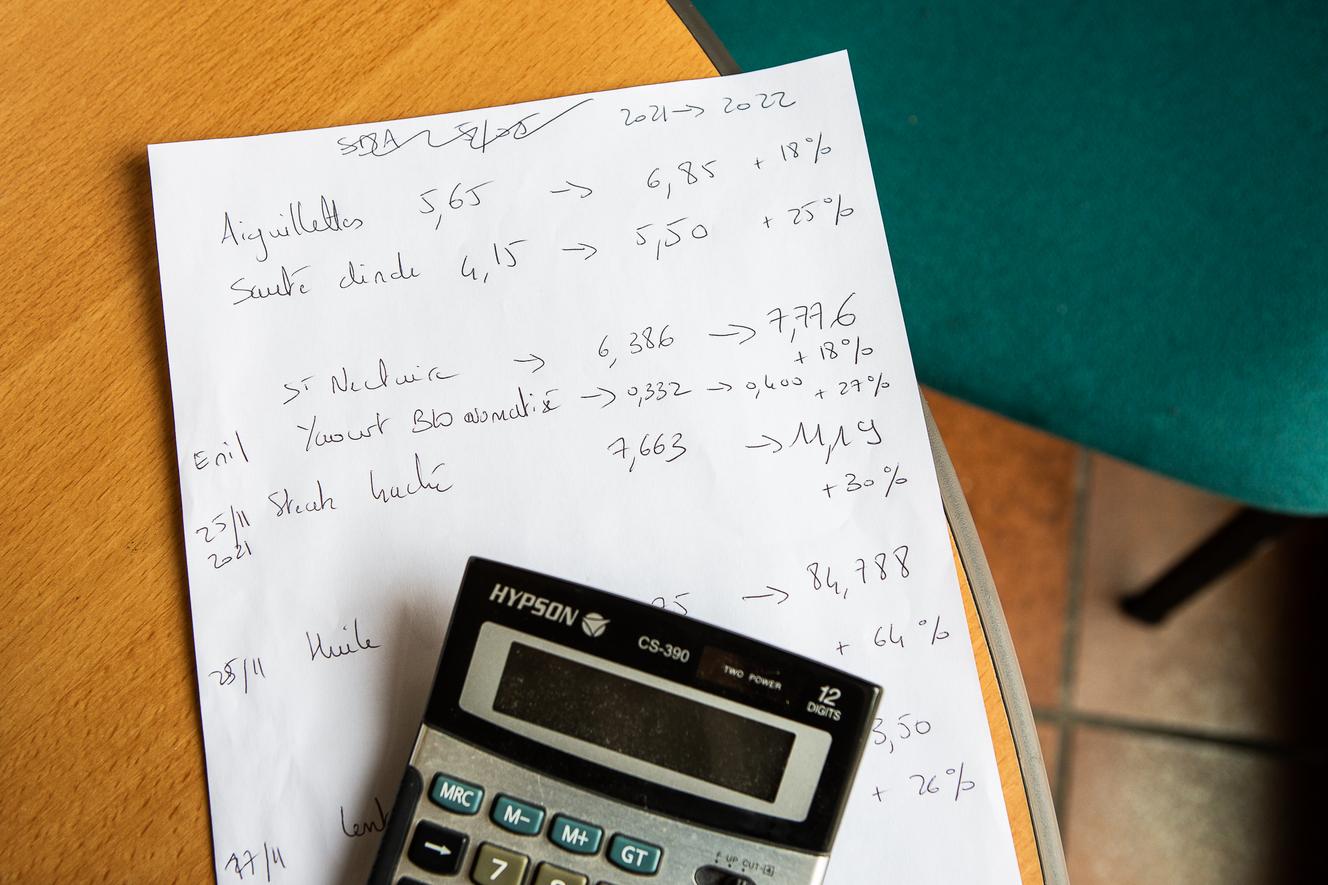 2021 → 2022
Aiguillettes 5,65 → 6,85 + 18%
Sauté dinde 4,15 → 5,50 + 25%
St Nectaire → 6,386 → 7,776
+ 18%
Yaourt Bio aromatisé → 0,332 → 0,400 + 27%
Enil
Steak haché 7,663 → 11,19
+ 30%
25/11
2021
Huile → 84,788
+ 64 %
25/11
3,50
+ 26%
17/11
HYPSON
CS-390
TWO POWER
12
DIGITS
MRC
M-
M+
GT
→
7
UP CUT